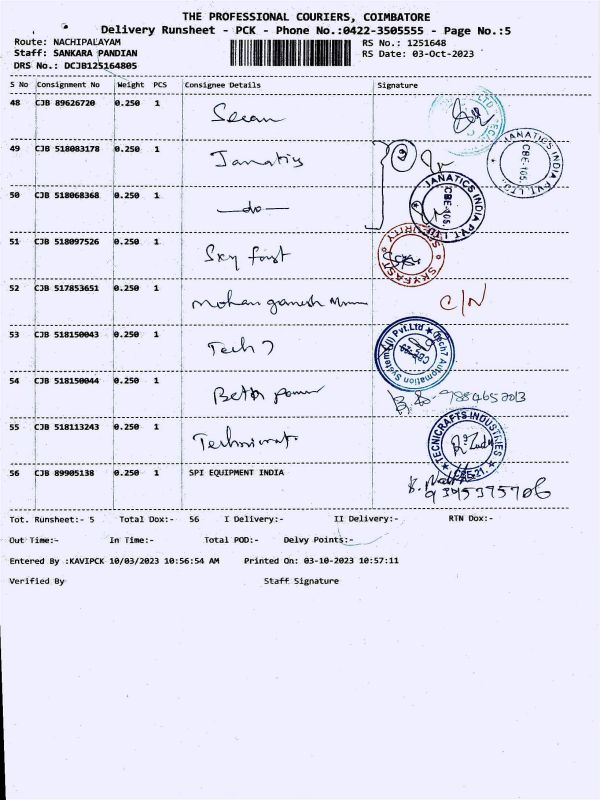 THE PROFESSIONAL COURIERS, COIMBATORE
Delivery Runsheet - PCK - Phone No.:0422-3505555 - Page No.:5
Route: NACHIPALAYAM RS No.: 1251648
Staff: SANKARA PANDIAN RS Date: 03-Oct-2023
DRS No.: DCJB125164805
S No Consignment No Weight PCS Consignee Details Signature
48 CJB 89626720 0.250 1
49 CJB 518083178 0.250 1 Janatics JANATICS INDIA PVT. LTD. CBE-105.
50 CJB 518068368 0.250 1 —do— JANATICS INDIA PVT. LTD. CBE-105.
51 CJB 518097526 0.250 1 Sky fast SKYFAST SECURITY
52 CJB 517853651 0.250 1 mohan ganesh C/N
53 CJB 518150043 0.250 1 Tech 7 Tech7 Automation Systems (I) Pvt.Ltd
54 CJB 518150044 0.250 1 Beth power
55 CJB 518113243 0.250 1 TECNICRAFTS INDUSTRIES CBE-21.
56 CJB 89905138 0.250 1 SPI EQUIPMENT INDIA 9395395706
Tot. Runsheet:- 5 Total Dox:- 56 I Delivery:- II Delivery:- RTN Dox:-
Out Time:- In Time:- Total POD:- Delvy Points:-
Entered By :KAVIPCK 10/03/2023 10:56:54 AM Printed On: 03-10-2023 10:57:11
Verified By Staff Signature